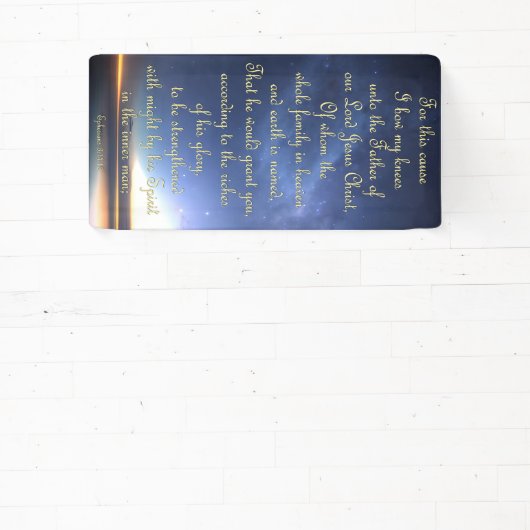 For this cause
I bow my knees
unto the Father of
our Lord Jesus Christ,
Of whom the
whole family in heaven
and earth is named,
That he would grant you,
according to the riches
of his glory,
to be strengthened
with might by his Spirit
in the inner man;